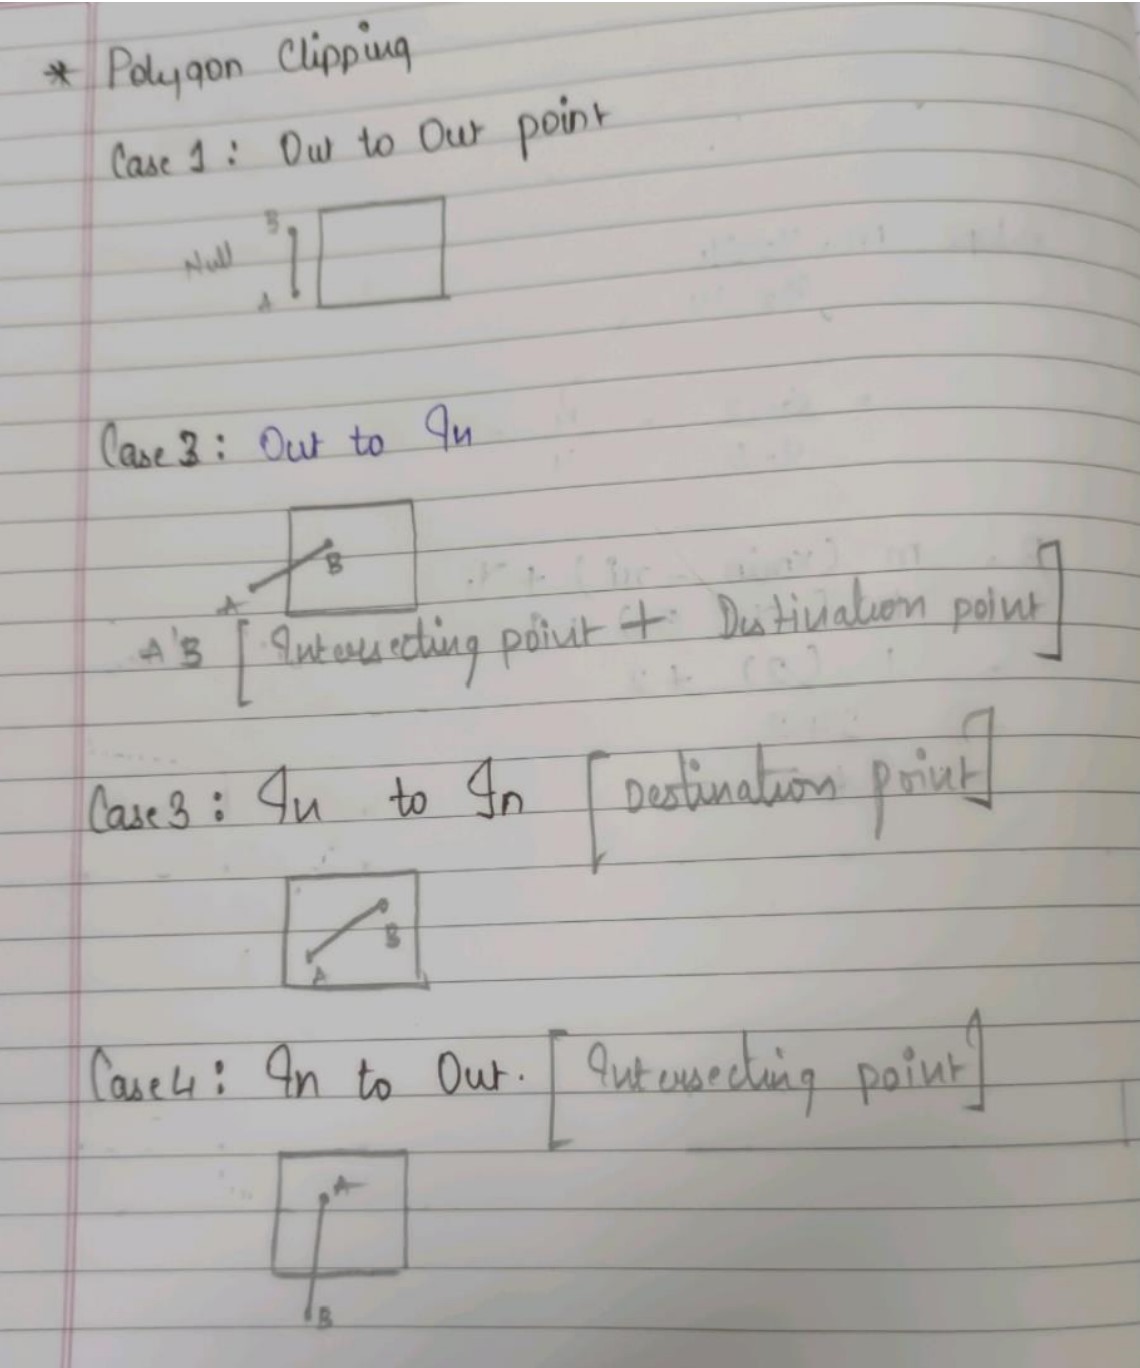 * Polygon Clipping
Case 1 : Out to Out point
B
Null
A
Case 3 : Out to In
B
A
A'B [ Intersecting point + Destination point ]
Case 3 : In to In [ Destination point ]
B
A
Case 4 : In to Out. [ Intersecting point ]
A
B